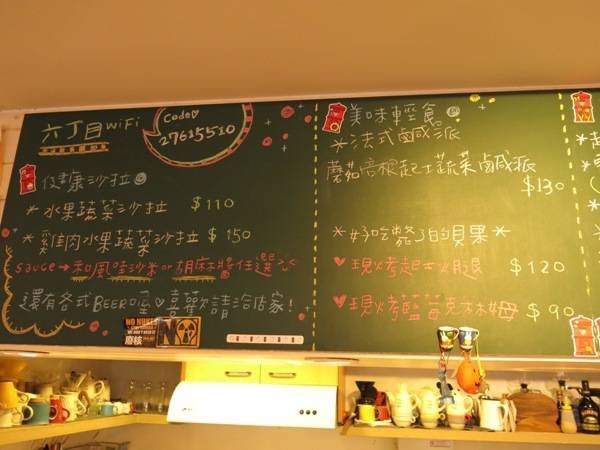 六丁目 WiFi
Code♡
27615510
健康沙拉
*水果蔬菜沙拉 $110
*雞肉水果蔬菜沙拉 $150
sauce→和風哇沙米 or 胡麻醬任選
還有各式BEER喔♡喜歡請洽店家!
NO NUKE
廢核
美味輕食
*法式鹹派
蘑菇培根起士蔬菜鹹派
$130
*好吃斃了的貝果*
♥現烤起士火腿 $120
♥現烤藍莓克林姆 $90